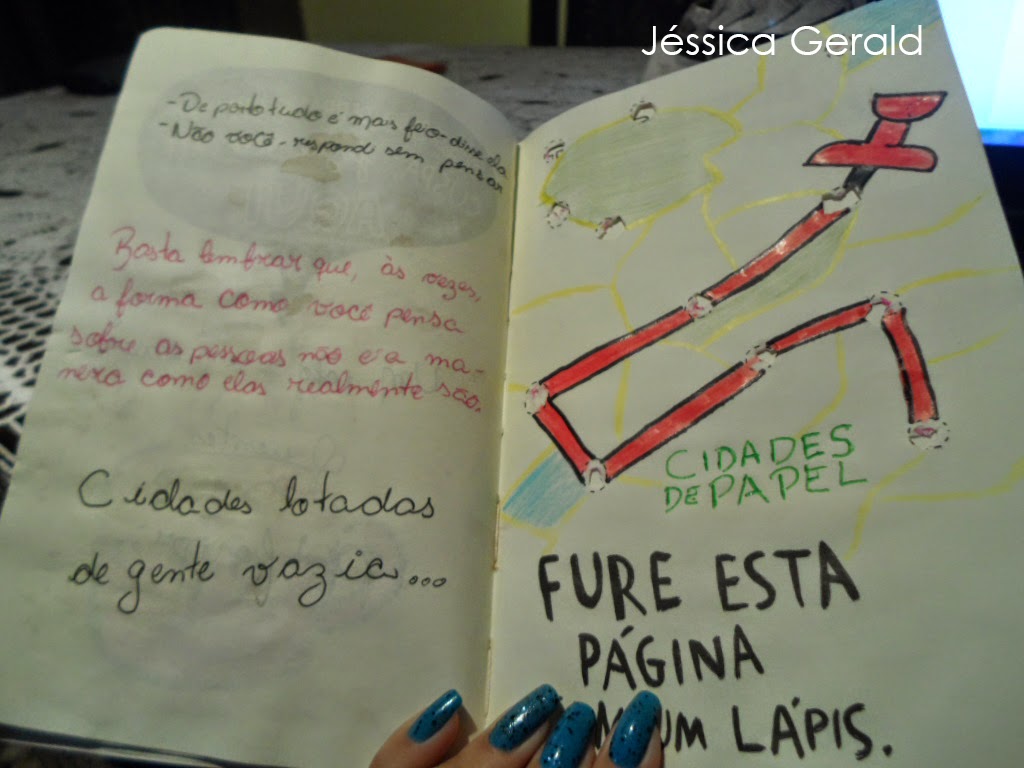 Jéssica Gerald
- De perto tudo é mais feio - disse ela
- Não você - respondi sem pensar
Basta lembrar que, às vezes,
a forma como você pensa
sobre as pessoas não é a ma-
neira como elas realmente são.
Cidades lotadas
de gente vazia...
CIDADES
DE PAPEL
FURE ESTA
PÁGINA
UM LÁPIS.